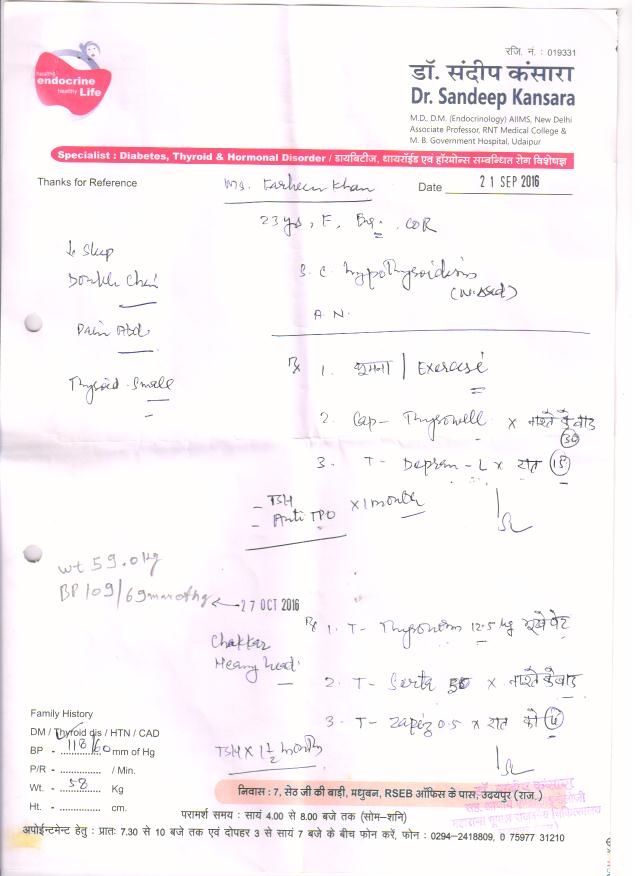 रजि. नं. : 019331
healthy
endocrine
healthy Life
डॉ. संदीप कंसारा
Dr. Sandeep Kansara
M.D., D.M. (Endocrinology) AIIMS, New Delhi
Associate Professor, RNT Medical College &
M. B. Government Hospital, Udaipur
Specialist : Diabetes, Thyroid & Hormonal Disorder / डायबिटीज, थायरॉईड एवं हॉरमोन्स सम्बन्धित रोग विशेषज्ञ
Thanks for Reference
Ms. Farheen Khan
Date 21 SEP 2016
23 yrs, F,
Double Chin
S. C. hypothyroidism
A. N.
Pain Abd
Thyroid - Small
Rx 1. घूमना / Exercise
2. Cap - Thyrowell x नाश्ते के बाद
30
3. T - Depran - L x रात 15
- TSH
- Anti TPO x 1 month
wt 59.0 kg
BP 109/69 mm of Hg
27 OCT 2016
Rx 1. T - Thyronorm 12.5 µg भूखे पेट
Chakkar
Heavy head
2. T - Serta 50 x नाश्ते के बाद
3. T - Zapiz 0.5 x रात को
TSH x 1 1/2 month
Family History
DM / Thyroid dis / HTN / CAD
BP - 118/60 mm of Hg
P/R - .............. / Min.
Wt. - 58 Kg
Ht. - .............. cm.
निवास : 7, सेठ जी की बाड़ी, मधुबन, RSEB ऑफिस के पास, उदयपुर (राज.)
डॉ. संदीप कंसारा
परामर्श समय : सायं 4.00 से 8.00 बजे तक (सोम-शनि)
अपोईन्टमेन्ट हेतु : प्रातः 7.30 से 10 बजे तक एवं दोपहर 3 से सायं 7 बजे के बीच फोन करें, फोन : 0294-2418809, 0 75977 31210